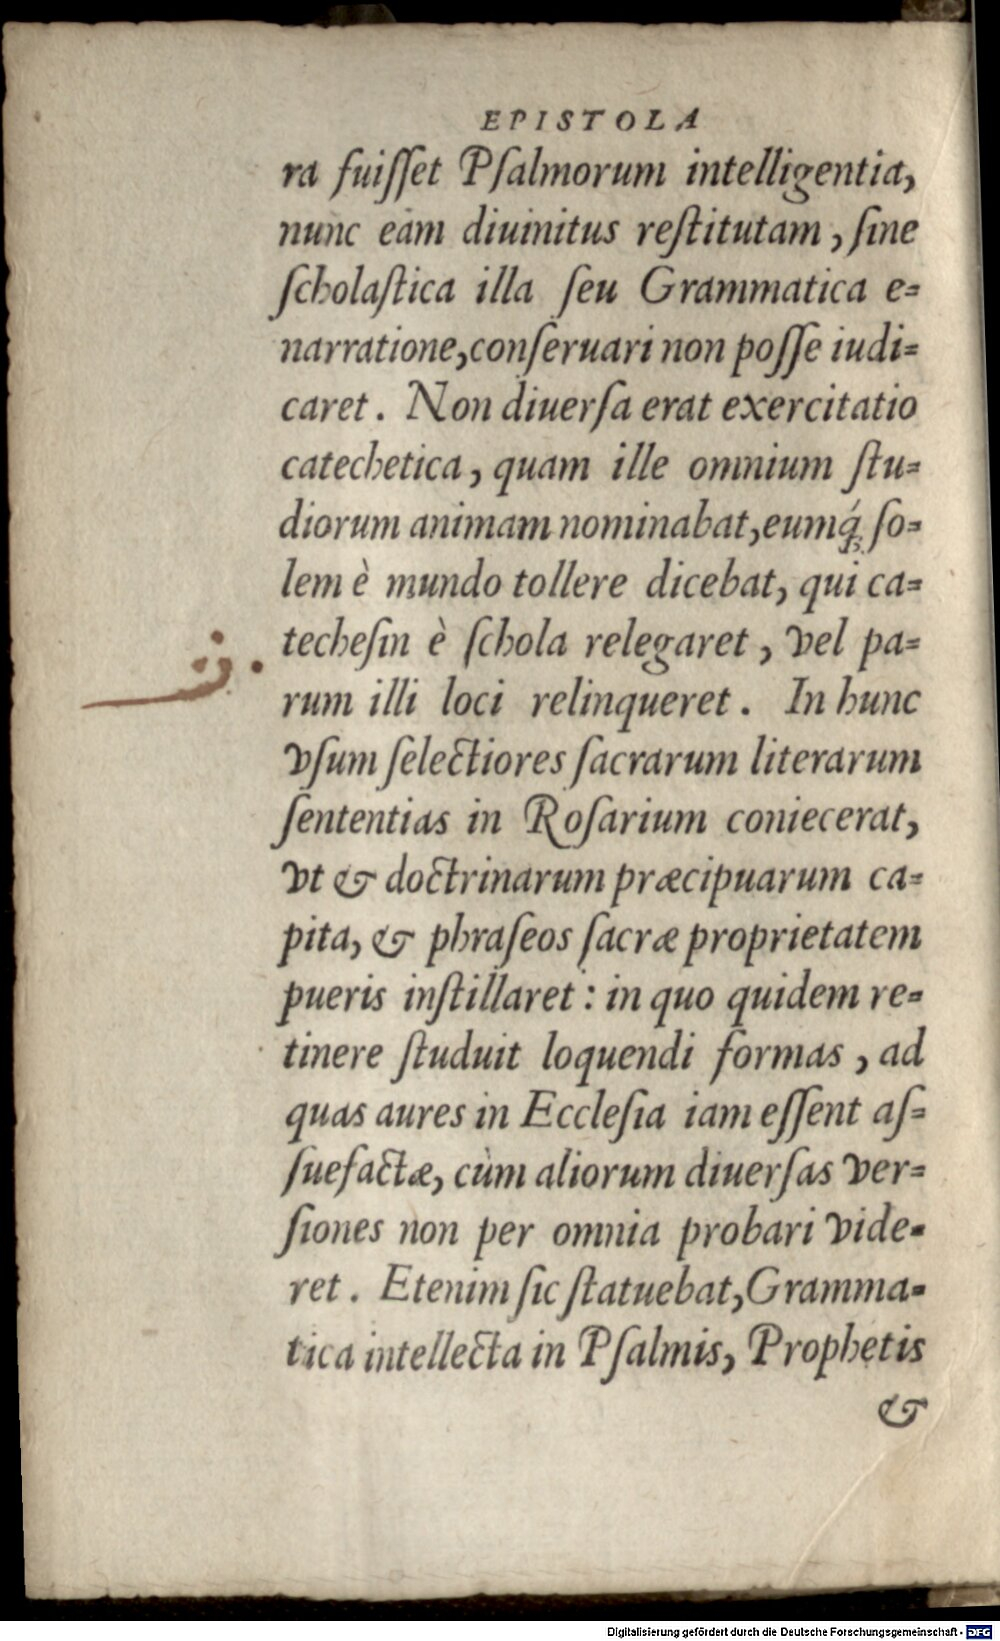 EPISTOLA
ra fuiſſet Pſalmorum intelligentia,
nunc eam diuinitus reſtitutam, ſine
ſcholaſtica illa ſeu Grammatica e-
narratione, conſeruari non poſſe iudi-
caret. Non diuerſa erat exercitatio
catechetica, quam ille omnium ſtu-
diorum animam nominabat, eumq́; ſo-
lem è mundo tollere dicebat, qui ca-
techeſin è ſchola relegaret, vel pa-
rum illi loci relinqueret. In hunc
vſum ſelectiores ſacrarum literarum
ſententias in Roſarium coniecerat,
vt & doctrinarum præcipuarum ca-
pita, & phraſeos ſacræ proprietatem
pueris inſtillaret: in quo quidem re-
tinere ſtuduit loquendi formas, ad
quas aures in Eccleſia iam eſſent aſ-
ſuefactæ, cùm aliorum diuerſas ver-
ſiones non per omnia probari vide-
ret. Etenim ſic ſtatuebat, Gramma-
tica intellecta in Pſalmis, Prophetis
&
Digitalisierung gefördert durch die Deutsche Forschungsgemeinschaft - DFG